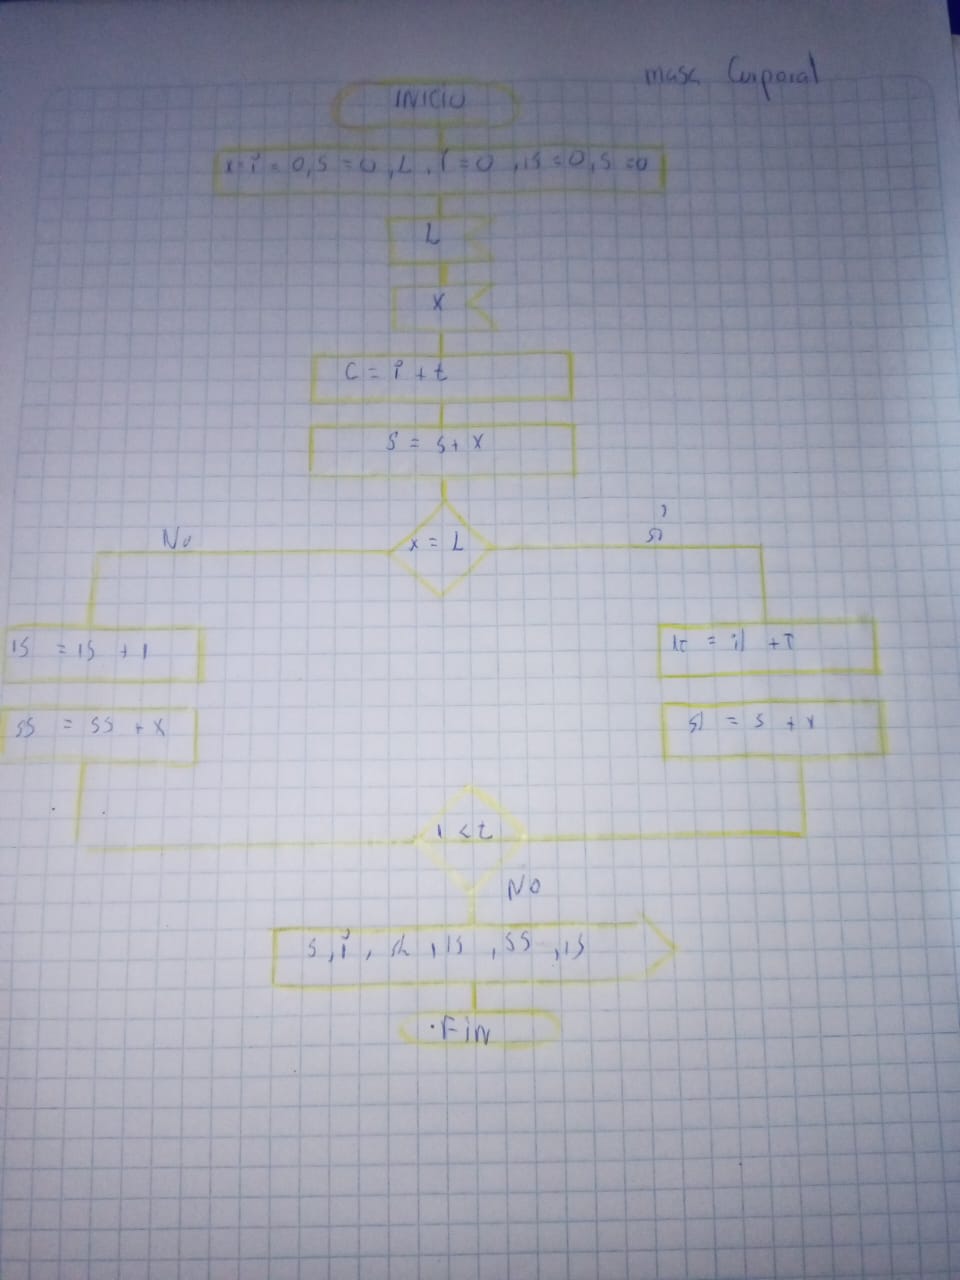 masa Corporal
INICIO
x=i = 0, S = 0, L, i = 0, is = 0, S = 0
L
X
C = i + t
S = S + X
No
x = L
si
is = is + 1
SS = SS + X
= S + x
i < t
NO
S, i, , is, SS, is
.Fin